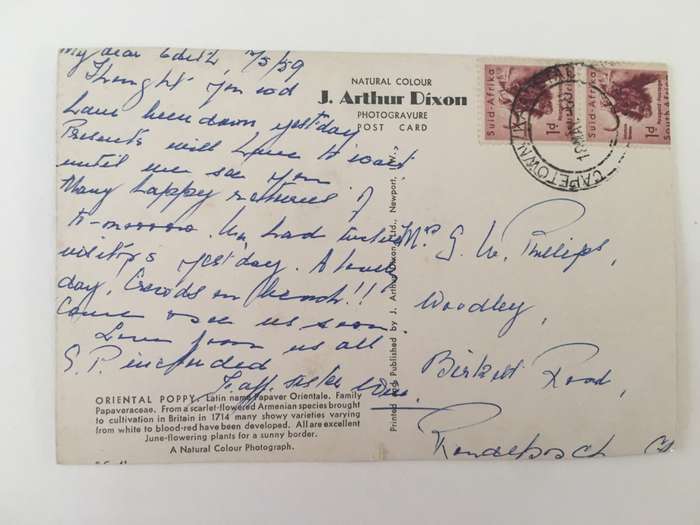 My dear Edith 17/5/59
Thought you wd
have been down yest'day
Presents will have to wait
until we see you
Many happy returns of
to-morrow. We had
visitors yest'day. A lovely
day. Crowds on beach!!
Come over & see us soon
Love from us all
G.P. included
Yr aff. sister
NATURAL COLOUR
J. Arthur Dixon
PHOTOGRAVURE
POST CARD
ORIENTAL POPPY. Latin name Papaver Orientale. Family
Papaveraceae. From a scarlet-flowered Armenian species brought
to cultivation in Britain in 1714 many showy varieties varying
from white to blood-red have been developed. All are excellent
June-flowering plants for a sunny border.
A Natural Colour Photograph.
Printed and Published by J. Arthur Dixon Ltd., Newport, I.W.
Suid-Afrika
1d
Suid-Afrika
1d
South Africa
CAPETOWN
Mrs G. W. Phillips,
Woodley,
Birkett Road,
Rondebosch